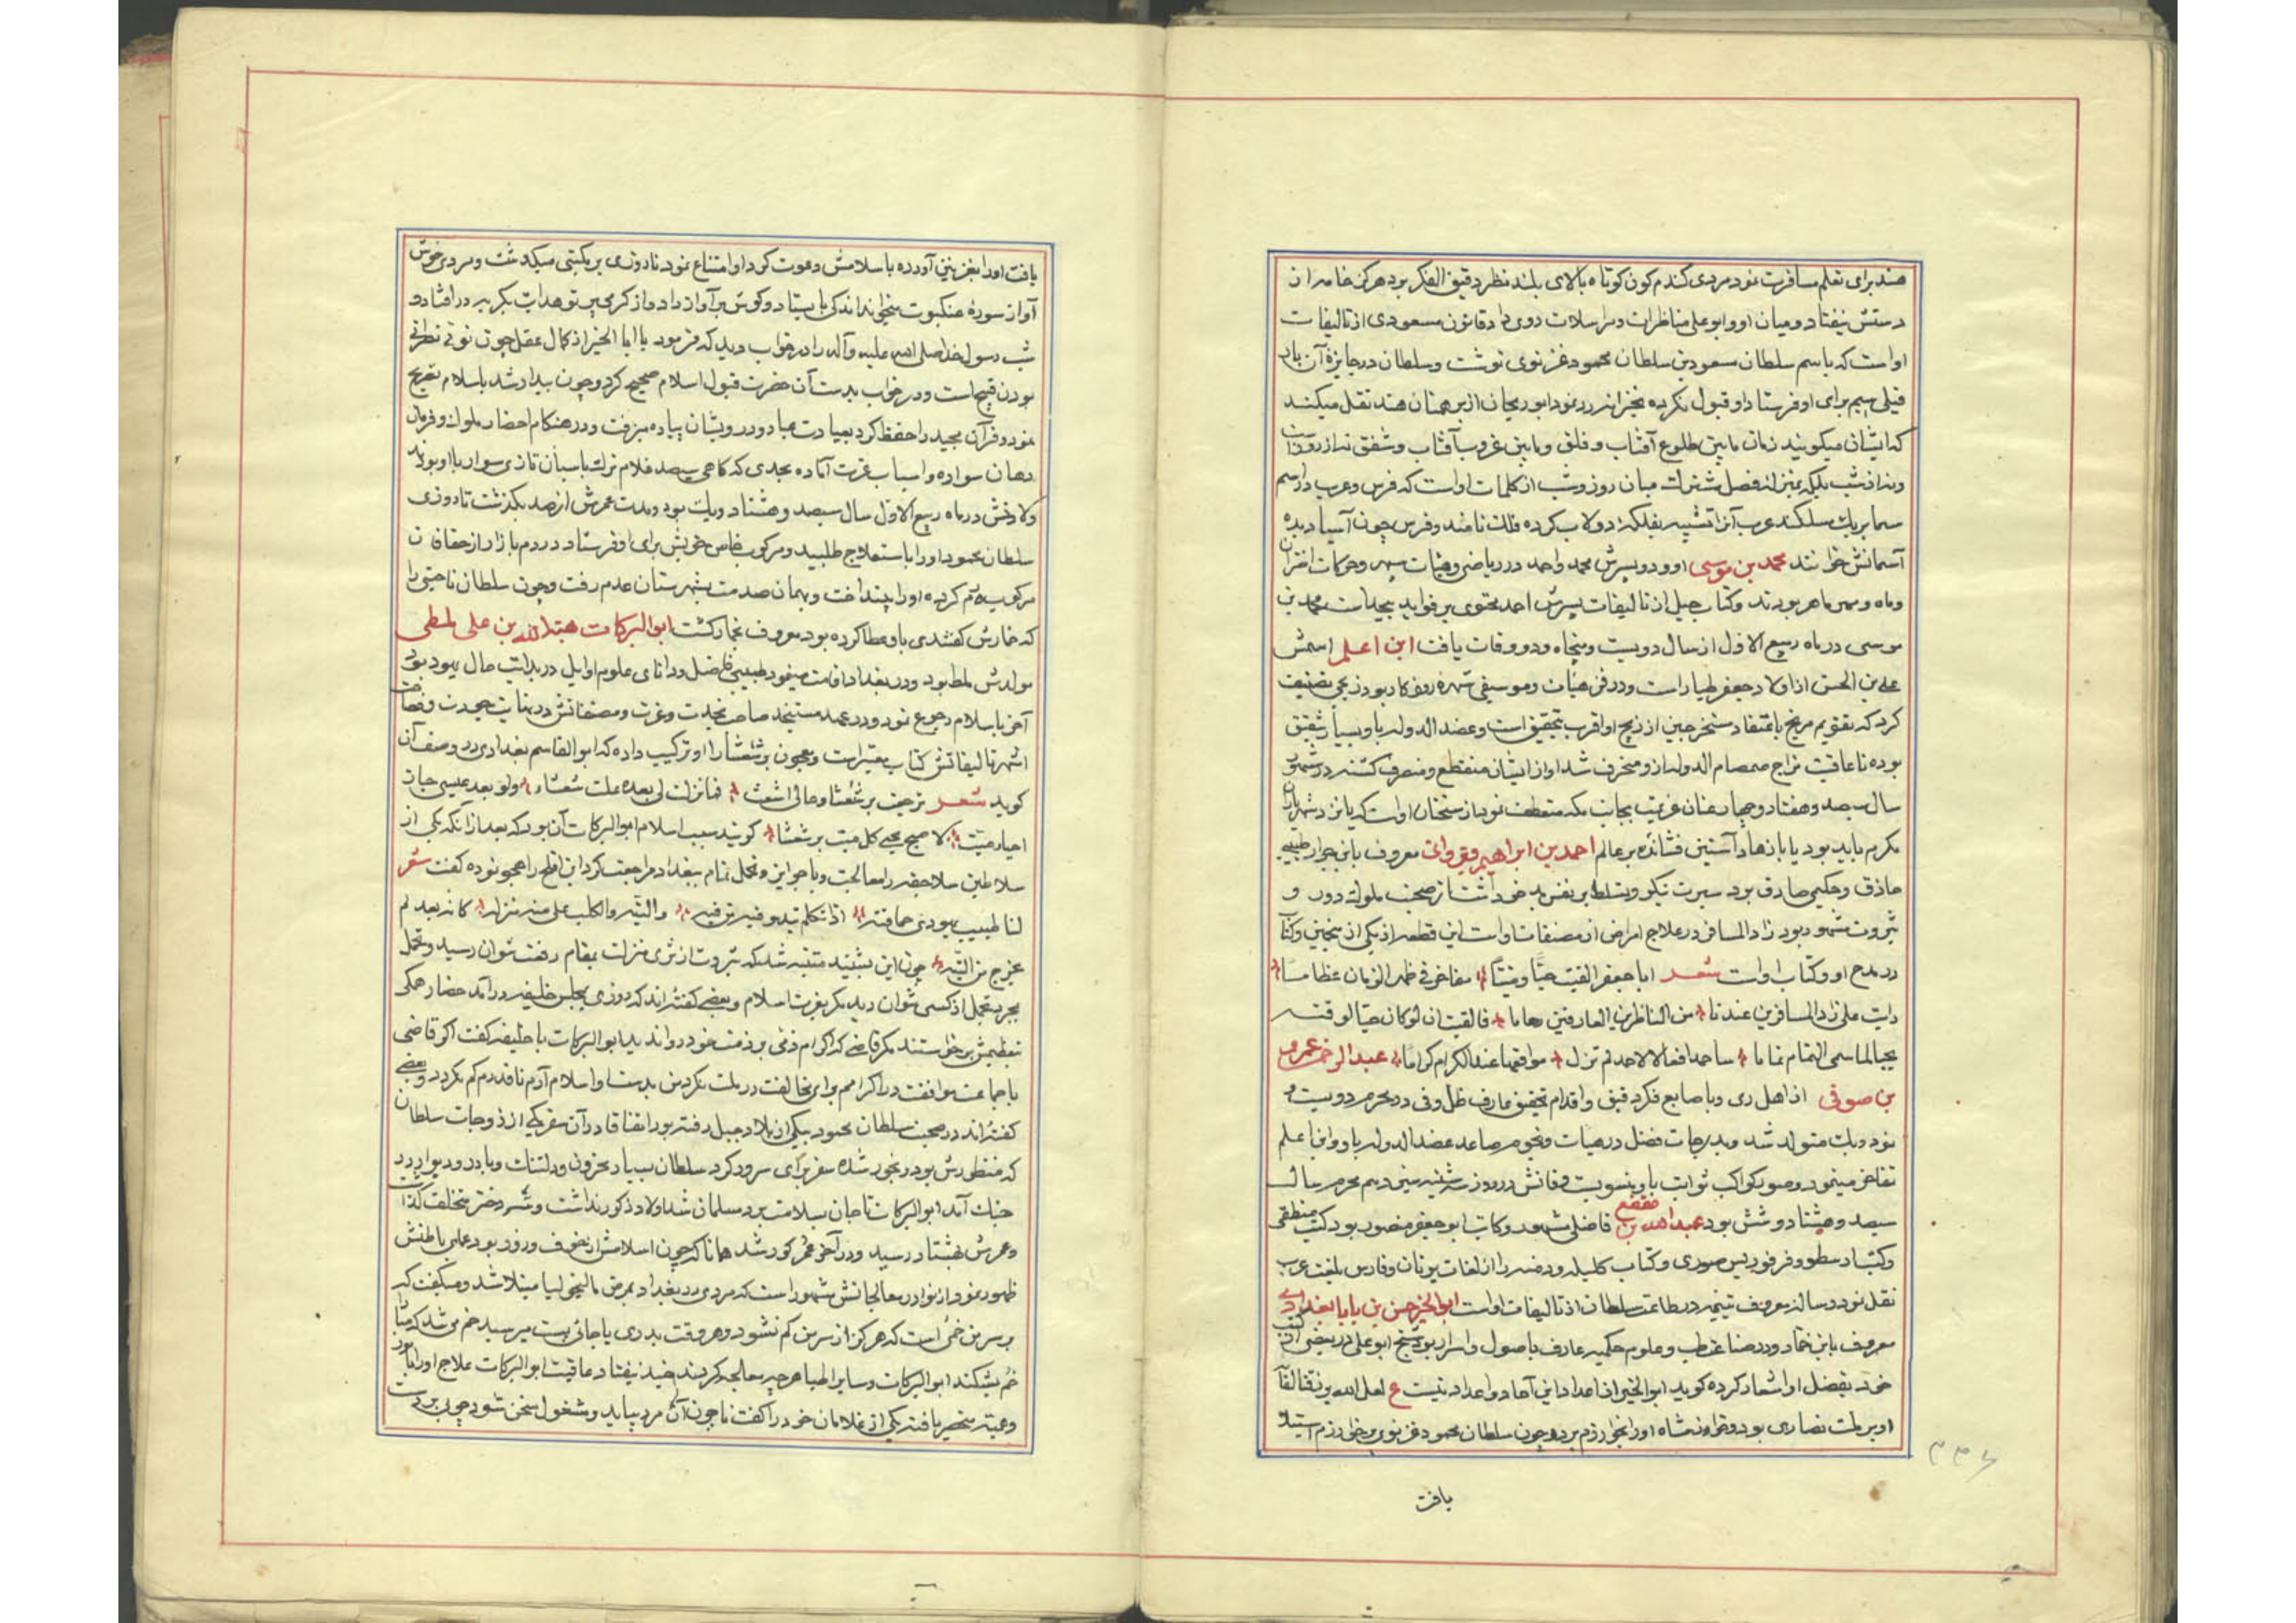 هند برای تعلم مسافرت نمود مردی گندم گون کوتاه بالای بلند نظر دقیق الفکر بود هرگز خامه از
دستش نیفتاد و میان او و ابو علی مناظرات و مراسلات روی داد قانون مسعودی از تالیفات
اواست که باسم سلطان مسعود بن سلطان محمود غزنوی نوشت و سلطان در جایزهٔ آن بار
فیلی سیم برای او فرستاد او قبول نکرده بخزانه رد نمود ابو ریحان از برهمنان هند نقل میکند
که ایشان میگویند زمان مابین طلوع آفتاب و فلق و مابین غروب آفتاب و شفق نه از روز است
ونه از شب بلکه بمنزله فصل مشترک میان روز و شب از کلمات اواست که فرس و عرب در اسم
سما بر یک مسلکند عرب آنرا تشبیه بفلکه دولاب کرده فلک نامند و فرس چون آسیا دیده
آسمانش خوانند محمد بن موسی او و دو پسرش محمد و احمد در ریاضی و هیئات سپهر و حرکات اختران
وماه و مهر ماهر بودند وکتاب حیل از تالیفات پسرش احمد محتوی بر فواید بیحد است محمد بن
موسی در ماه ربیع الاول از سال دویست و پنجاه و دو وفات یافت ابن اعلم اسمش
علی بن الحسن از اولاد جعفر طیار است و در فن هیئات و موسیقی شهره روزگار بود زیجی تصنیف
کرد که تقویم مریخ باعتقاد مستخرجین از زیج او اقرب بتحقیق است و عضد الدوله باو بسیار شفیق
بوده تا عاقبت مزاج صمصام الدوله ازو منحرف شد او از ایشان منقطع و منصرف گشته در شهور
سال سیصد و هفتاد و چهار عنان عزیمت بجانب مکه منعطف نمود از سخنان اواست که یا نزد شهریاران
مکرم باید بود یا با زهاد آستین فشانده بر عالم احمد بن ابراهیم قیروانی معروف بابن جزار طبیبی
حاذق و حکیمی صادق بود سیرت نیکو و تسلط بر نفس بد خود داشت از صحبت ملوک دور و
بثروت مشهور بود زاد المسافر در علاج امراض از مصنفات اواست این قطعه از یکی از منجمین وکتاب
در مدح او و کتاب اواست شعر ابا جعفر ابقیت حیا و میتا مفاخر فی ظهر الزمان عظاما
رایت علی زاد المسافرین عندنا من الناظرین العارفین زحاما فایقنت ان لو کان حیا لوقته
یحیا لماسمی التمام تماما ساحمد افعالا لاحمد لم تزل مواقعها عند الکرام کراما عبد الرحمن عمر
بن صوفی از اهل ری وباصابع فکر دقیق و اقدام تحقیق عارف ظل و فی در محرم دویست و
نود و یک متولد شد و بدرجات فضل در هیات و نجوم صاعد عضد الدوله باو و ابن اعلم
تفاخر مینمود و صور کواکب ثوابت باو منسوبست وفاتش در روز سه شنبه سیزدهم محرم سال
سیصد و هشتاد و شش بود عبد الله بن مقفع فاضلی مشهور و کاتب ابو جعفر منصور بود کتب منطقی
وکتب ارسطو و فرفوریس صوری و کتاب کلیله و دمنه را از لغات یونان و فارس بلغت عرب
نقل نمود و رساله معروف بیتیمه در طاعت سلطان از تالیفات اواست ابو الخیر حسن بن بابا بغدادی
معروف بابن خمار و در صناعت طب و علوم حکمیه عارف باصول و اسرار بود شیخ ابو علی در بعضی از کتب
خود بفضل او اشعار کرده گوید ابو الخیر از اعداد این آحاد و اعداد نیست ع لعل الله یرزقنا لقاء
او بر ملت نصاری بود و خوارزمشاه او را بخوارزم برد و چون سلطان محمود غزنوی بر خوارزم استیلا
یافت
یافت او را بغزنین آورده باسلامش دعوت کرد او امتناع نمود تا روزی بر مکتبی میگذشت و مردی خوش
آواز سورهٔ عنکبوت میخواند اندکی بایستاد و گوش بر آواز داد واز کرمی بین تو هدایت بگریه در افتاد و
شب رسول خدا صلی الله علیه وآله را در خواب دید که فرمود یا ابا الخیر از کمال عقل چون توئی نصرانی
بودن قبیح است و در خواب بدست آن حضرت قبول اسلام صحیح کرد و چون بیدار شد باسلام تصریح
نمود و قرآن مجید را حفظ کرد بعیادت عباد و درویشان پیاده میرفت و در هنگام احضار ملوک و فرمان
دهان سواره واسباب عزت آماده بحدی که گاهی سیصد غلام ترک باسبان تازی سوار با او بودند
ولادتش در ماه ربیع الاول سال سیصد و هشتاد و یک بود و مدت عمرش از صد بگذشت تا روزی
سلطان محمود او را باستعلاج طلبید و مرکوب خاص خویش برای او فرستاد در دم بازار از خفقان
مرکوب رم کرده او را بینداخت و بهمان صدمت بشهرستان عدم رفت و چون سلطان ناحیتی را
که خمارش گفتندی باو عطا کرده بود معروف بخمار گشت ابو البرکات هبة الله بن علی بلطی
مولدش بلط بود و در بغداد اقامت مینمود طبیبی فاضل و دانای علوم اوایل در بدایت حال یهود بود
آخر باسلام رجوع نمود و در عهد مستنجد صاحب نجدت و عزت و مصنفاتش در نهایت جودت و فصاحت
اشهر تالیفاتش کتاب معتبر است و معجون برشعشا را او ترکیب داده که ابو القاسم بغدادی در وصف آن
گوید شعر ترحیت برشعشا وحالی اشعث فمانزلت لی بعده علت شعثاء ولو بعد عیسی جاز
احیاء میت لاصبح یحیی کل میت برشعشا گویند سبب اسلام ابو البرکات آن بود که بعد از آنکه یکی از
سلاطین سلاجقه را معالجت و با جوایز و تجمل تمام ببغداد مراجعت کرد ابن افلح را هجو نموده گفت شعر
لنا طبیب یهودی حماقته اذا تکلم تبدو فیه من فیه والتیه والکلب اعلی منه منزلة کانه بعد لم
یخرج من التیه چون این بشنید متنبه شد که بثروت از ثری منزلت بمقام رفعت نتوان رسید و تحمل
بجز تجمل از کسی نتوان دید مگر بعزت اسلام و بعضی گفته اند که روزی بمجلس خلیفه درآمد حضار همگی
بتعظیمش برخواستند مگر قاضی که اکرام ذمی بر ذمت خود روا ندید ابو البرکات با خلیفه گفت اگر قاضی
با جماعت موافقت در اکرامم برای مخالفت در ملت نکرد من بدست او اسلام آرم تا قدرم کم نگردد و بعضی
گفته اند در صحبت سلطان محمود بیکی از بلاد جبل رفته بود اتفاقا در آن سفر یکی از زوجات سلطان
که منظورش بود رنجور شده سفر برای سرور کرد سلطان بسیار محزون و دلتنگ و با در و دیوار در
جنک آمد ابو البرکات تا جان سلامت برد مسلمان شد اولاد ذکور نداشت و سه دختر مخلف گذاشت
وعمرش بهشتاد رسید و در آخر عمر کور شد همانا که چون اسلامش از خوف و زور بود عمی باطنش
ظهور نمود از نوادر معالجاتش مشهور است که مردی در بغداد بمرض مالیخولیا مبتلا شد و میگفت که
بر سر من خمی است که هرگز از سر من کم نشود و هر وقت بدری یا جائی پست میرسید خم می شد که مبادا
خم بشکند ابو البرکات و سایر اطبا هر چه معالجه کردند مفید نیفتاد عاقبت ابو البرکات علاج او را
وعبته منحصر یافته یکی از غلامان خود را گفت تا چون آن مرد بیاید و مشغول سخن شود چوبی بر دست